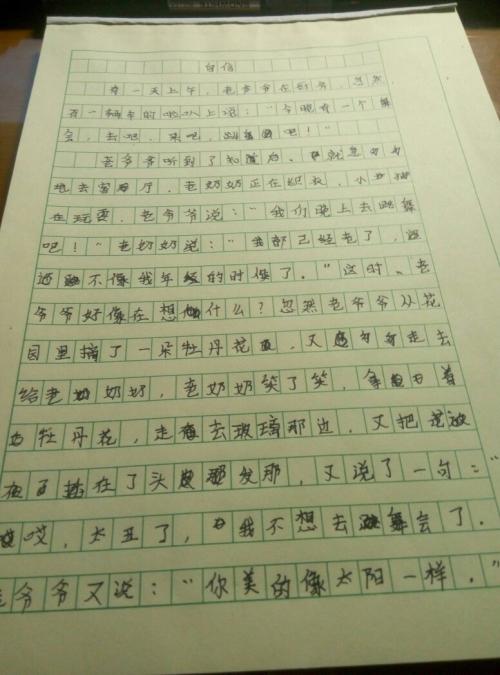 自信
有一天上午，老爷爷在剪剪，忽然
有一辆车的喇叭上说：“今晚有一个舞
会，去吧，来吧，吧！”
老爷爷听到了知道后，就急匆匆
地去客厅，老奶奶正在织衣，小
在玩耍，老爷爷说：“我们晚上去跳舞
吧！”老奶奶说：“我都已经老了，
还不像我年轻的时候了。”这时，老
爷爷好像在想什么？忽然老爷爷从花
园里摘了一朵牡丹花，又匆匆走去
给老奶奶，老奶奶笑了笑，拿着
牡丹花，走去玻璃那边，又把
插在了头发那，又说了一句：“
哎，太丑了，我不想去舞会了。
爷爷又说：“你美的像太阳一样。”